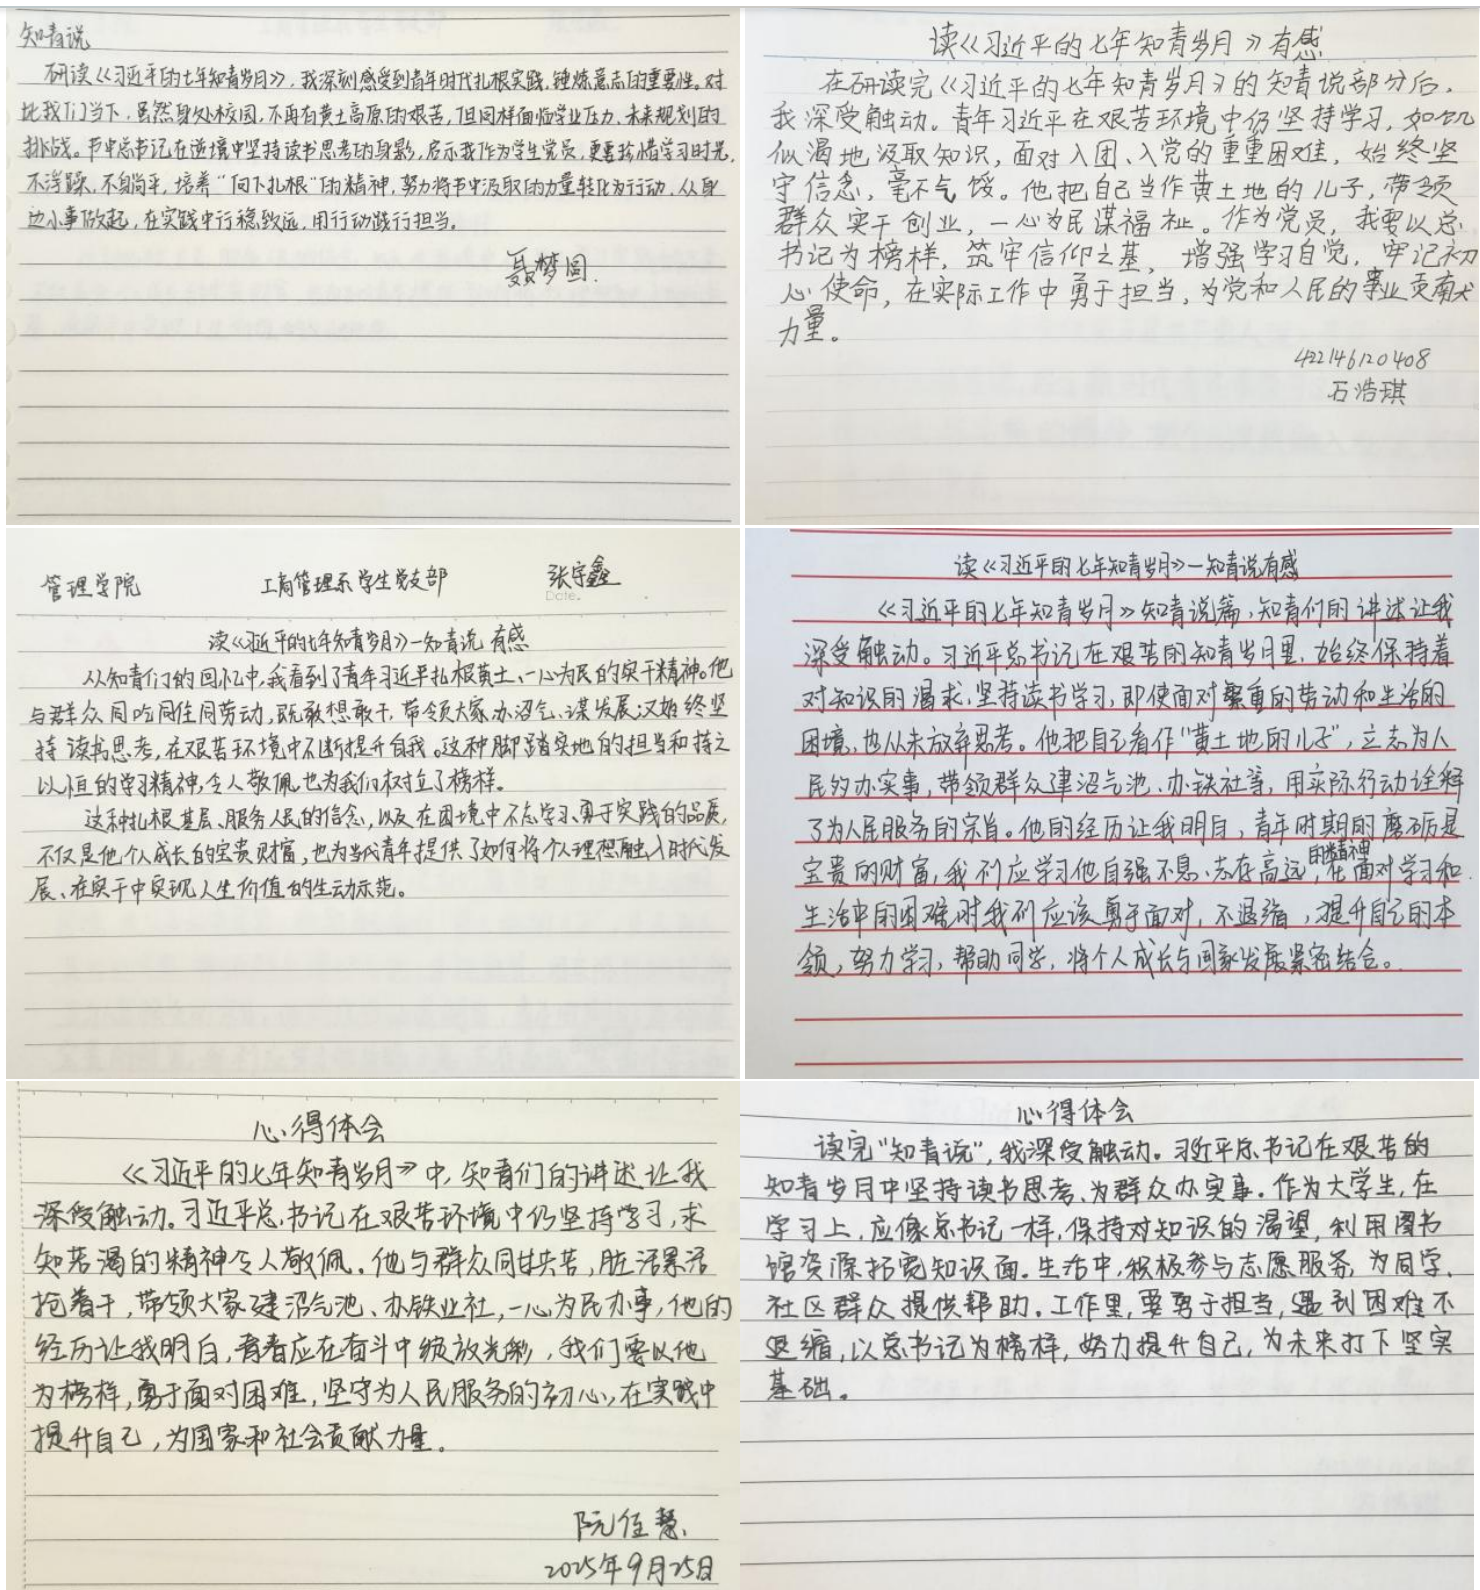 知青说
研读《习近平的七年知青岁月》，我深刻感受到青年时代扎根实践、锤炼意志的重要性。对
比我们当下，虽然身处校园，不再有黄土高原的艰苦，但同样面临学业压力、未来规划的
挑战。书中总书记在逆境中坚持读书思考的身影，启示我作为学生党员，更要珍惜学习时光，
不浮躁、不自满，培养“向下扎根”的精神，努力将书中汲取的力量转化为行动，从身
边小事做起，在实践中行稳致远，用行动践行担当。
聂梦圆.
读《习近平的七年知青岁月》有感
在研读完《习近平的七年知青岁月》的知青说部分后，
我深受触动。青年习近平在艰苦环境中仍坚持学习，如饥
似渴地汲取知识，面对入团、入党的重重困难，始终坚
守信念，毫不气馁。他把自己当作黄土地的儿子，带领
群众实干创业，一心为民谋福祉。作为党员，我要以总
书记为榜样，筑牢信仰之基，增强学习自觉，牢记初
心使命，在实际工作中勇于担当，为党和人民的事业贡献
力量。
422146120408
石浩琪
管理学院 工商管理系学生党支部 张宇鑫
Date.
读《习近平的七年知青岁月》—知青说 有感
从知青们的回忆中，我看到了青年习近平扎根黄土、一心为民的实干精神。他
与群众同吃同住同劳动，既敢想敢干，带领大家办沼气、谋发展；又始终坚
持读书思考，在艰苦环境中不断提升自我。这种脚踏实地的担当和持之
以恒的学习精神，令人敬佩，也为我们树立了榜样。
这种扎根基层、服务人民的信念，以及在困境中不忘学习、勇于实践的品质，
不仅是他个人成长的宝贵财富，也为当代青年提供了如何将个人理想融入时代发
展、在实干中实现人生价值的生动示范。
读《习近平的七年知青岁月》—知青说有感
《习近平的七年知青岁月》知青说篇，知青们的讲述让我
深受触动。习近平总书记在艰苦的知青岁月里，始终保持着
对知识的渴求，坚持读书学习，即使面对繁重的劳动和生活的
困境，也从未放弃思考。他把自己看作“黄土地的儿子”，立志为人
民的办实事，带领群众建沼气池、办铁社等，用实际行动诠释
了为人民服务的宗旨。他的经历让我明白，青年时期的磨砺是
宝贵的财富，我们应学习他自强不息、志存高远的精神，在面对学习和
生活中的困难时我们应该勇于面对，不退缩，提升自己的本
领，努力学习，帮助同学，将个人成长与国家发展紧密结合。
心得体会
《习近平的七年知青岁月》中，知青们的讲述让我
深受触动。习近平总书记在艰苦环境中仍坚持学习，求
知若渴的精神令人敬佩。他与群众同甘共苦，脏活累活
抢着干，带领大家建沼气池、办铁业社，一心为民办事，他的
经历让我明白，青春应在奋斗中绽放光彩，我们要以他
为榜样，勇于面对困难，坚守为人民服务的初心，在实践中
提升自己，为国家和社会贡献力量。
阮佳慧
2025年9月25日
心得体会
读完“知青说”，我深受触动。习近平总书记在艰苦的
知青岁月中坚持读书思考、为群众办实事。作为大学生，在
学习上，应像总书记一样，保持对知识的渴望，利用图书
馆资源拓宽知识面。生活中，积极参与志愿服务，为同学、
社区群众提供帮助。工作里，要勇于担当，遇到困难不
退缩，以总书记为榜样，努力提升自己，为未来打下坚实
基础。